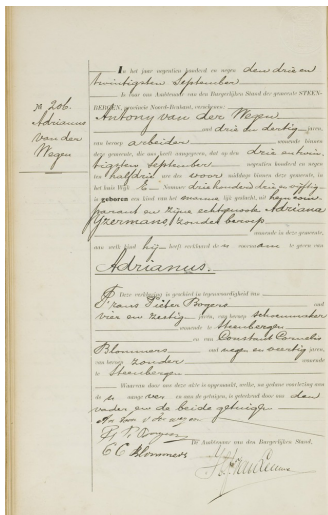 In het jaar negentien honderd en negen den drie en
twintigsten September
is voor ons Ambtenaar van den Burgerlijken Stand der gemeente STEEN-
BERGEN, provincie Noord-Brabant, verschenen:
Antony van der Wegen
oud drie en dertig jaren,
van beroep arbeider wonende binnen
deze gemeente, die ons heeft aangegeven, dat op den drie en twin-
tigsten September negentien honderd en negen
ten half drie ure des voor middags binnen deze gemeente, in
het huis Wijk E Nommer driehonderd drie en vijftig
is geboren een kind van het manne lijk geslacht, uit hem com-
parant en zijne echtgenoote Adriana
IJzermans, zonder beroep
wonende in deze gemeente,
aan welk kind hij heeft verklaard de voornaam te geven van
Adrianus.
Deze verklaring is geschied in tegenwoordigheid van
Frans Pieter Borgers oud
vier en zestig jaren, van beroep schoenmaker
wonende te Steenbergen
en van Constant Cornelis
Blommers oud negen en veertig jaren,
van beroep zonder wonende
te Steenbergen
Waarvan door ons deze akte is opgemaakt, welke, na gedane voorlezing aan
de aangever en aan de getuigen, is geteekend door ons den
vader en de beide getuigen
C C Blommers
De Ambtenaar van den Burgerlijken Stand,
No 206.
Adrianus
van der
Wegen